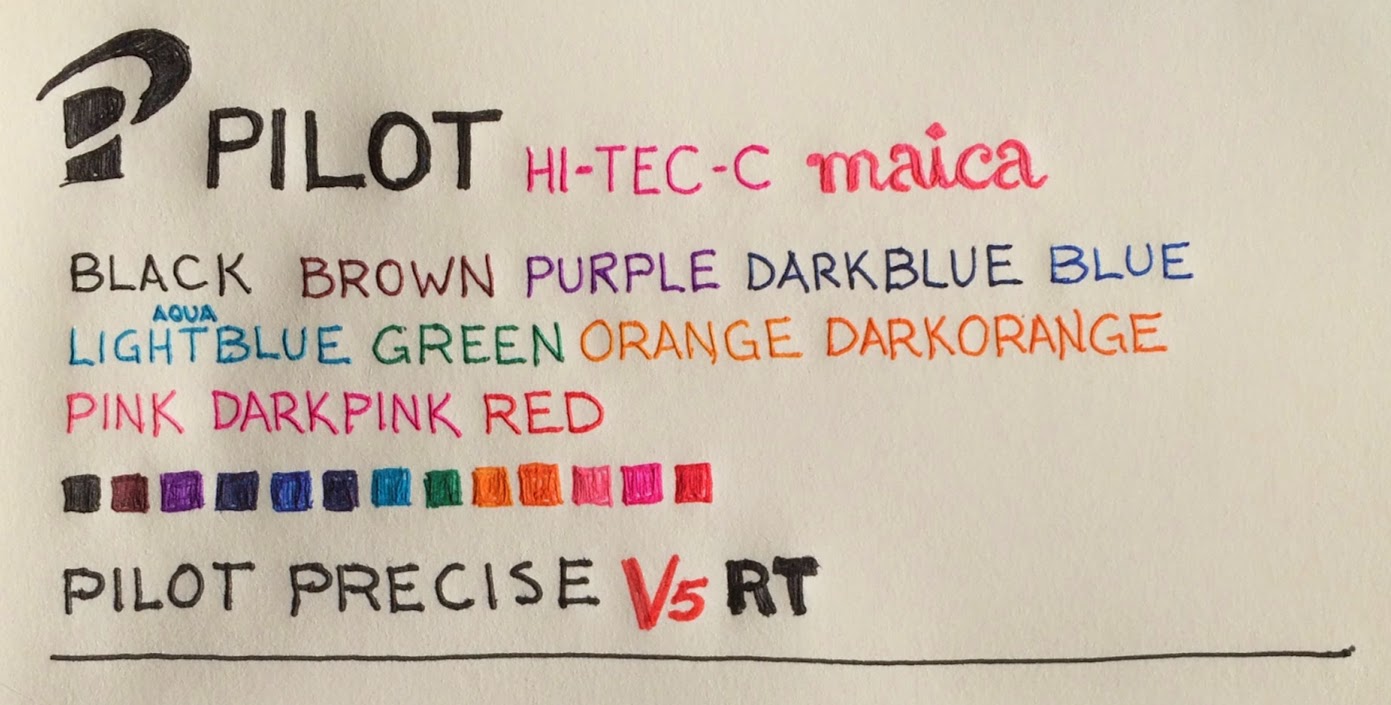 PILOT HI-TEC-C maica
BLACK BROWN PURPLE DARKBLUE BLUE
AQUA
LIGHTBLUE GREEN ORANGE DARKORANGE
PINK DARKPINK RED
PILOT PRECISE V5 RT